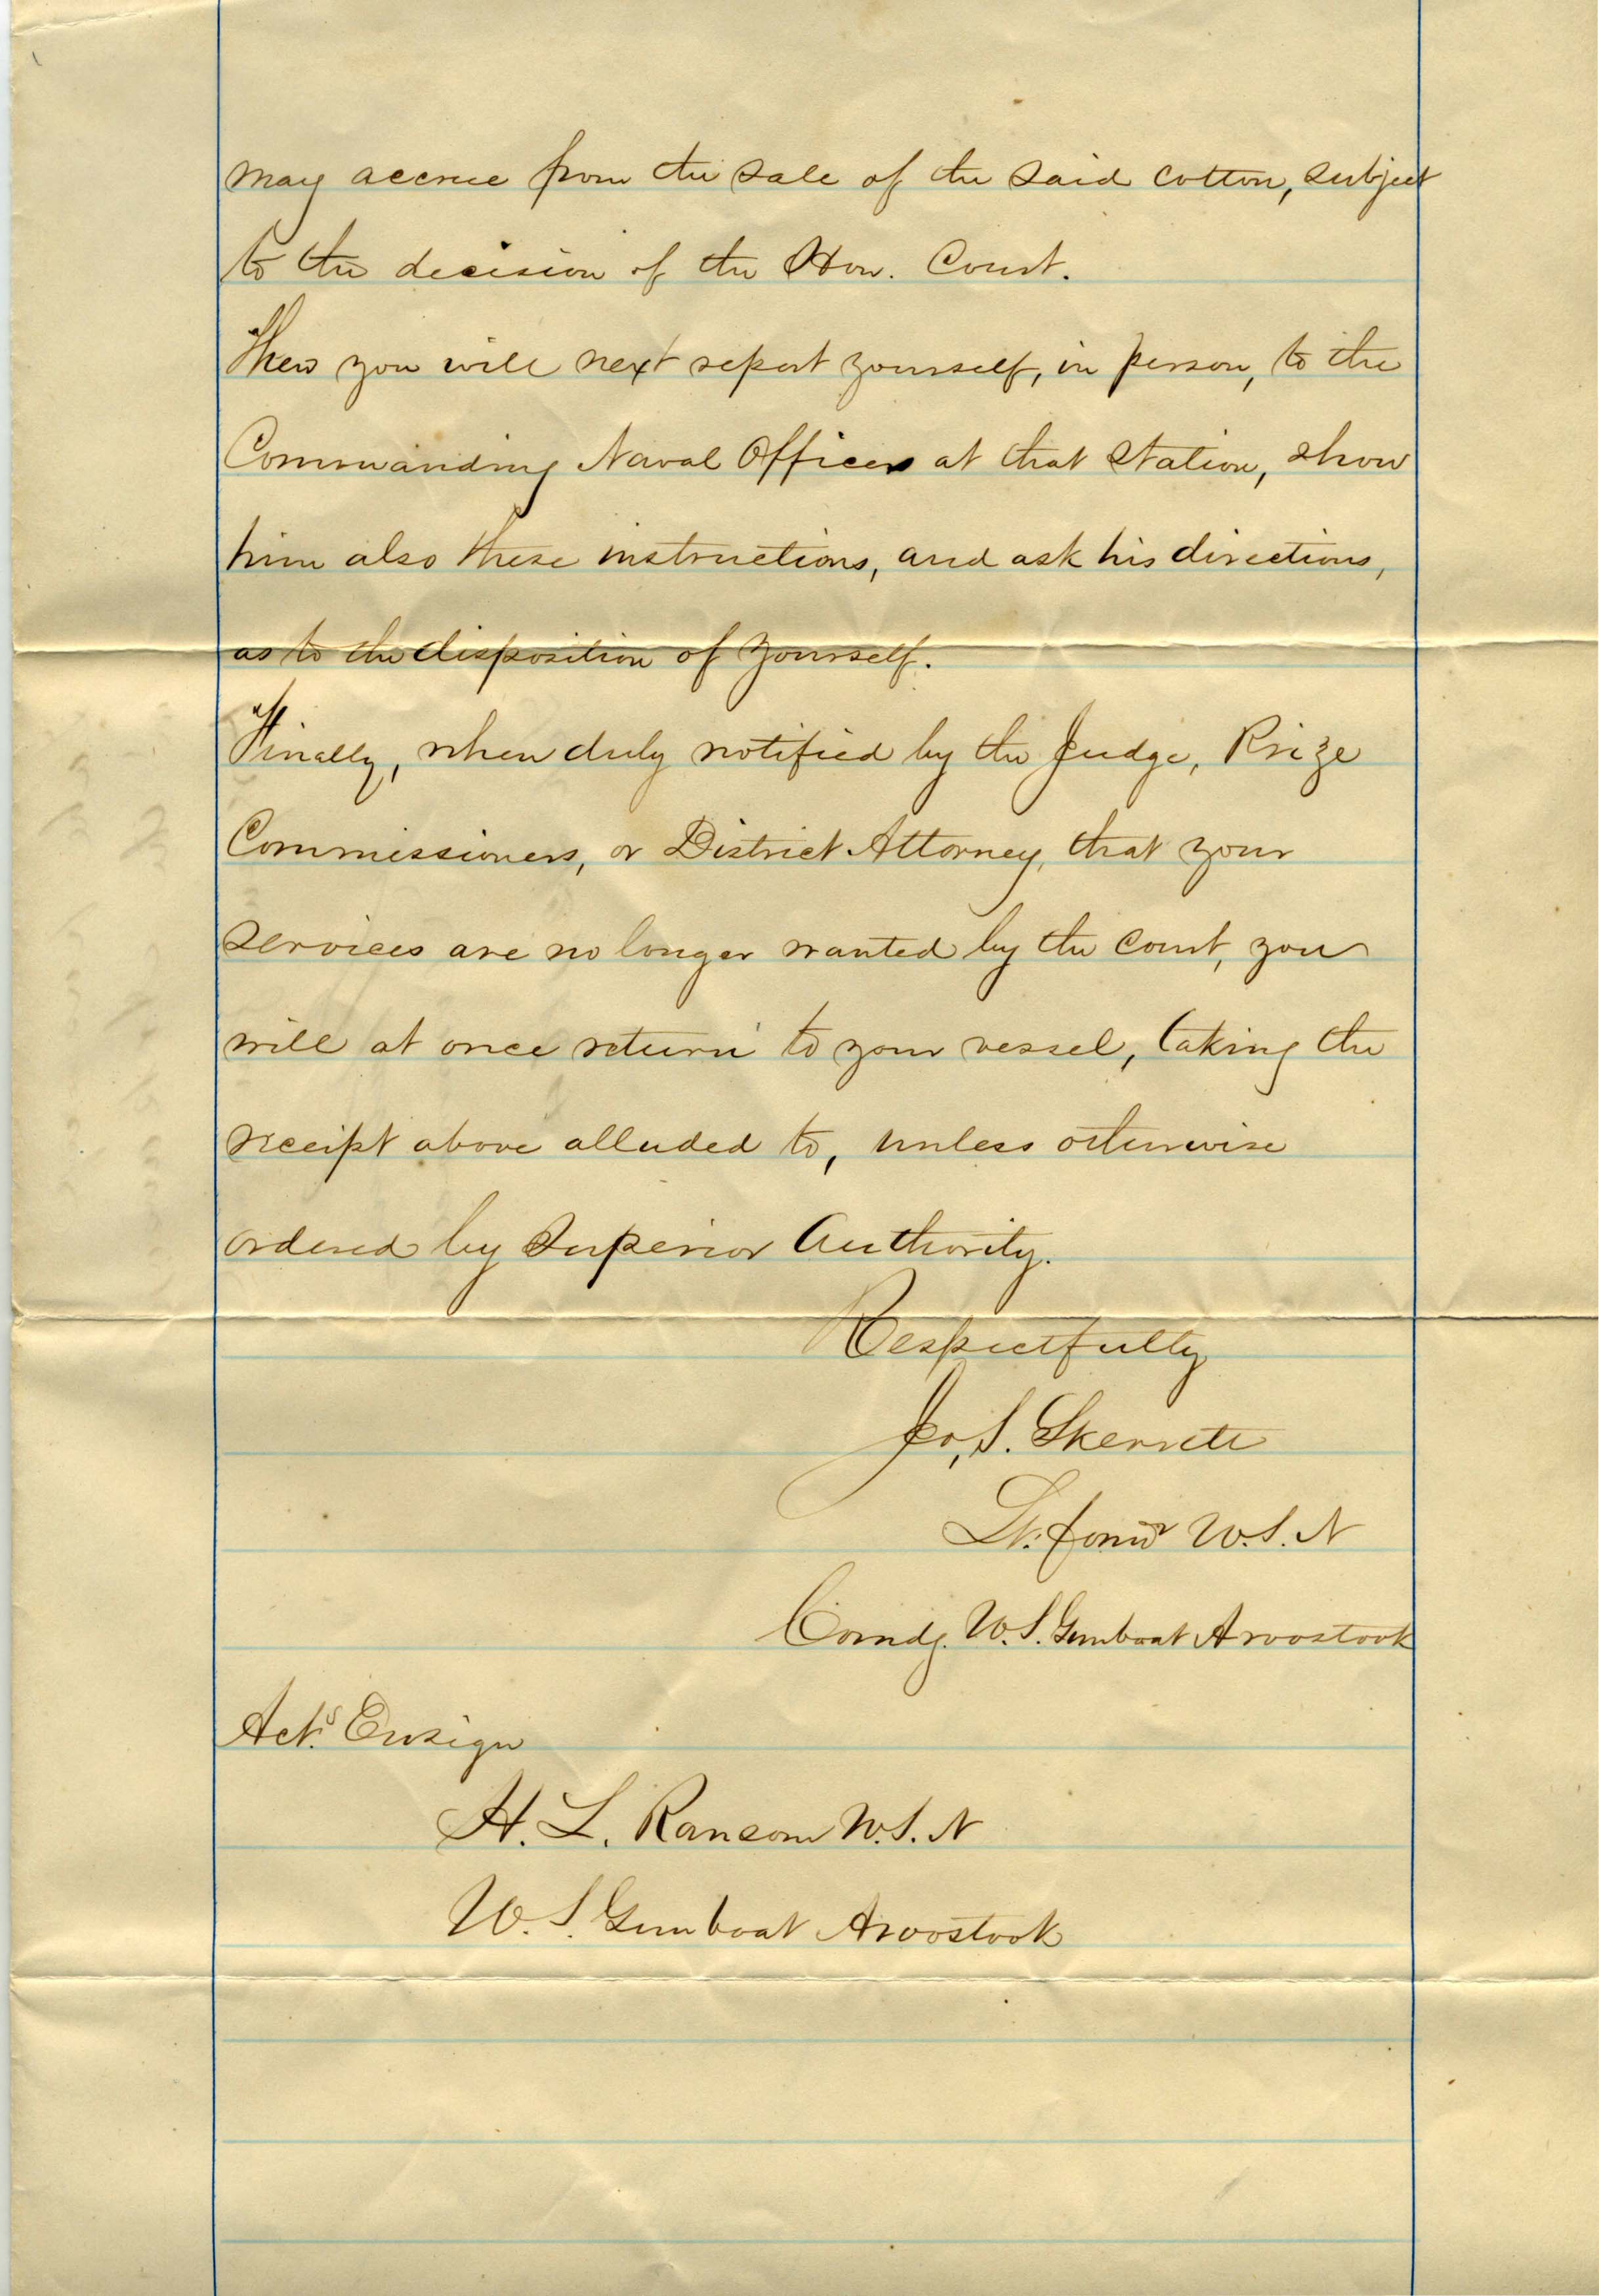 may accrue from the sale of the said cotton, subject
to the decision of the Hon. Court.
Then you will next report yourself, in person, to the
Commanding Naval Officer at that Station, show
him also these instructions, and ask his directions,
as to the disposition of yourself.
Finally, when duly notified by the Judge, Prize
Commissioners, or District Attorney, that your
services are no longer wanted by the Court, you
will at once return to your vessel, taking the
receipt above alluded to, unless otherwise
ordered by Superior Authority.
Respectfully
Jos. S. Skerrett
Lt. Comdr U.S.N
Comdg. U.S. Gunboat Aroostook
Actg Ensign
H. L. Ransom U.S.N
U.S. Gunboat Aroostook